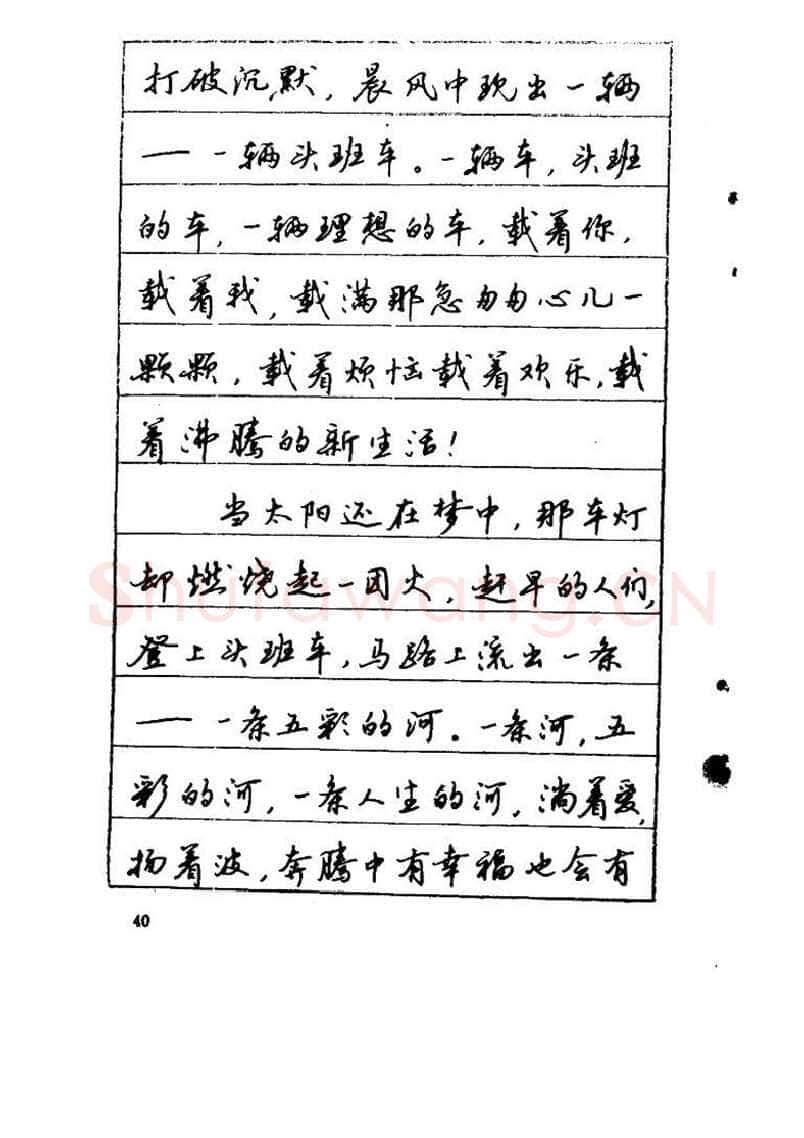 打破沉默，晨风中现出一辆
——一辆头班车。一辆车，头班
的车，一辆理想的车，载着你，
载着我，载满那急匆匆心儿一
颗颗，载着烦恼载着欢乐，载
着沸腾的新生活！
当太阳还在梦中，那车灯
却燃烧起一团火，赶早的人们，
登上头班车，马路上流出一条
——一条五彩的河。一条河，五
彩的河，一条人生的河，淌着爱，
扬着波，奔腾中有幸福也会有
40
Shufawang.CN